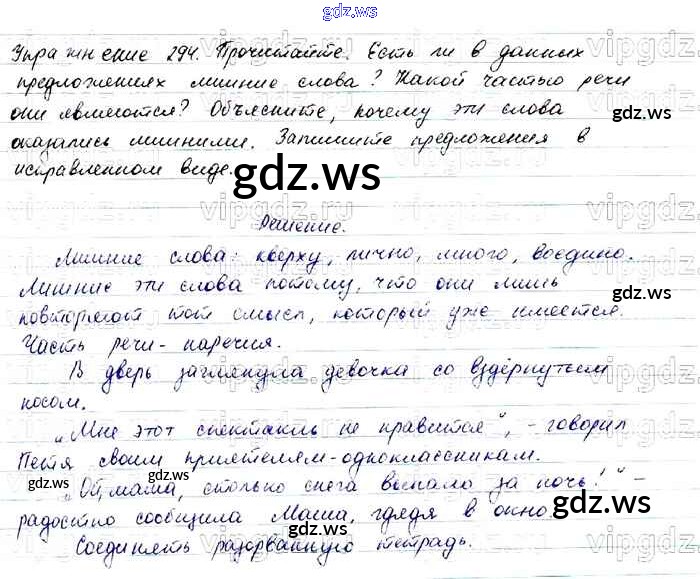 gdz.ws
Упражнение 294. Прочитайте. Есть ли в данных
предложениях лишние слова? Какой частью речи
они являются? Объясните, почему эти слова
оказались лишними. Запишите предложения в
исправленном виде.
gdz.ws
Решение.
Лишние слова: кверху, лично, много, воедино.
Лишние эти слова потому, что они лишь
gdz.ws
повторяют тот смысл, который уже имеется.
Часть речи - наречия.
В дверь заглянула девочка со вздёрнутым
носом.
„Мне этот спектакль не нравится“, - говорил
Петя своим приятелям-одноклассникам.
gdz.ws
gdz.ws
„Ой, мама, сколько снега выпало за ночь!“ -
радостно сообщила Маша, глядя в окно.
gdz.ws
Соединять разорванную тетрадь.
gdz.ws